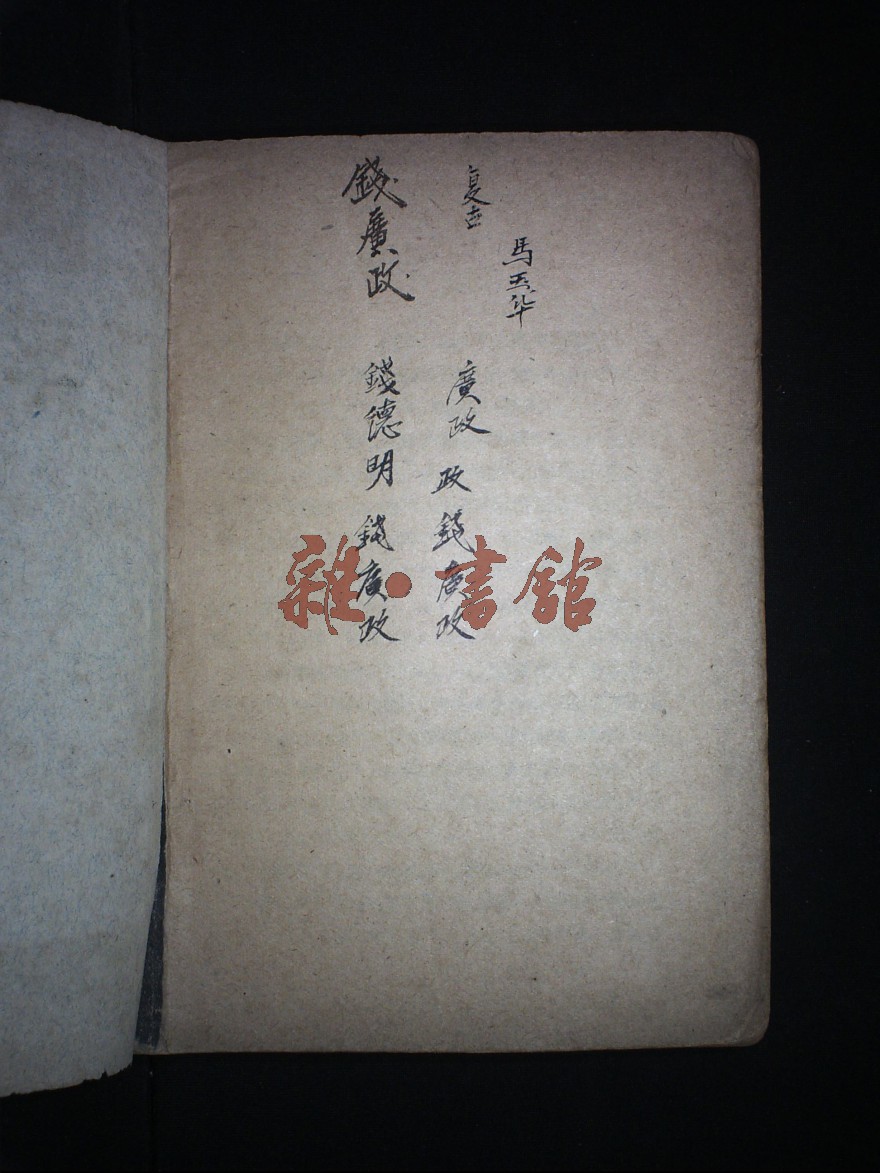 馬玉华
复
廣政 政 錢廣政
錢廣政
錢德明 錢廣政
雜·書館